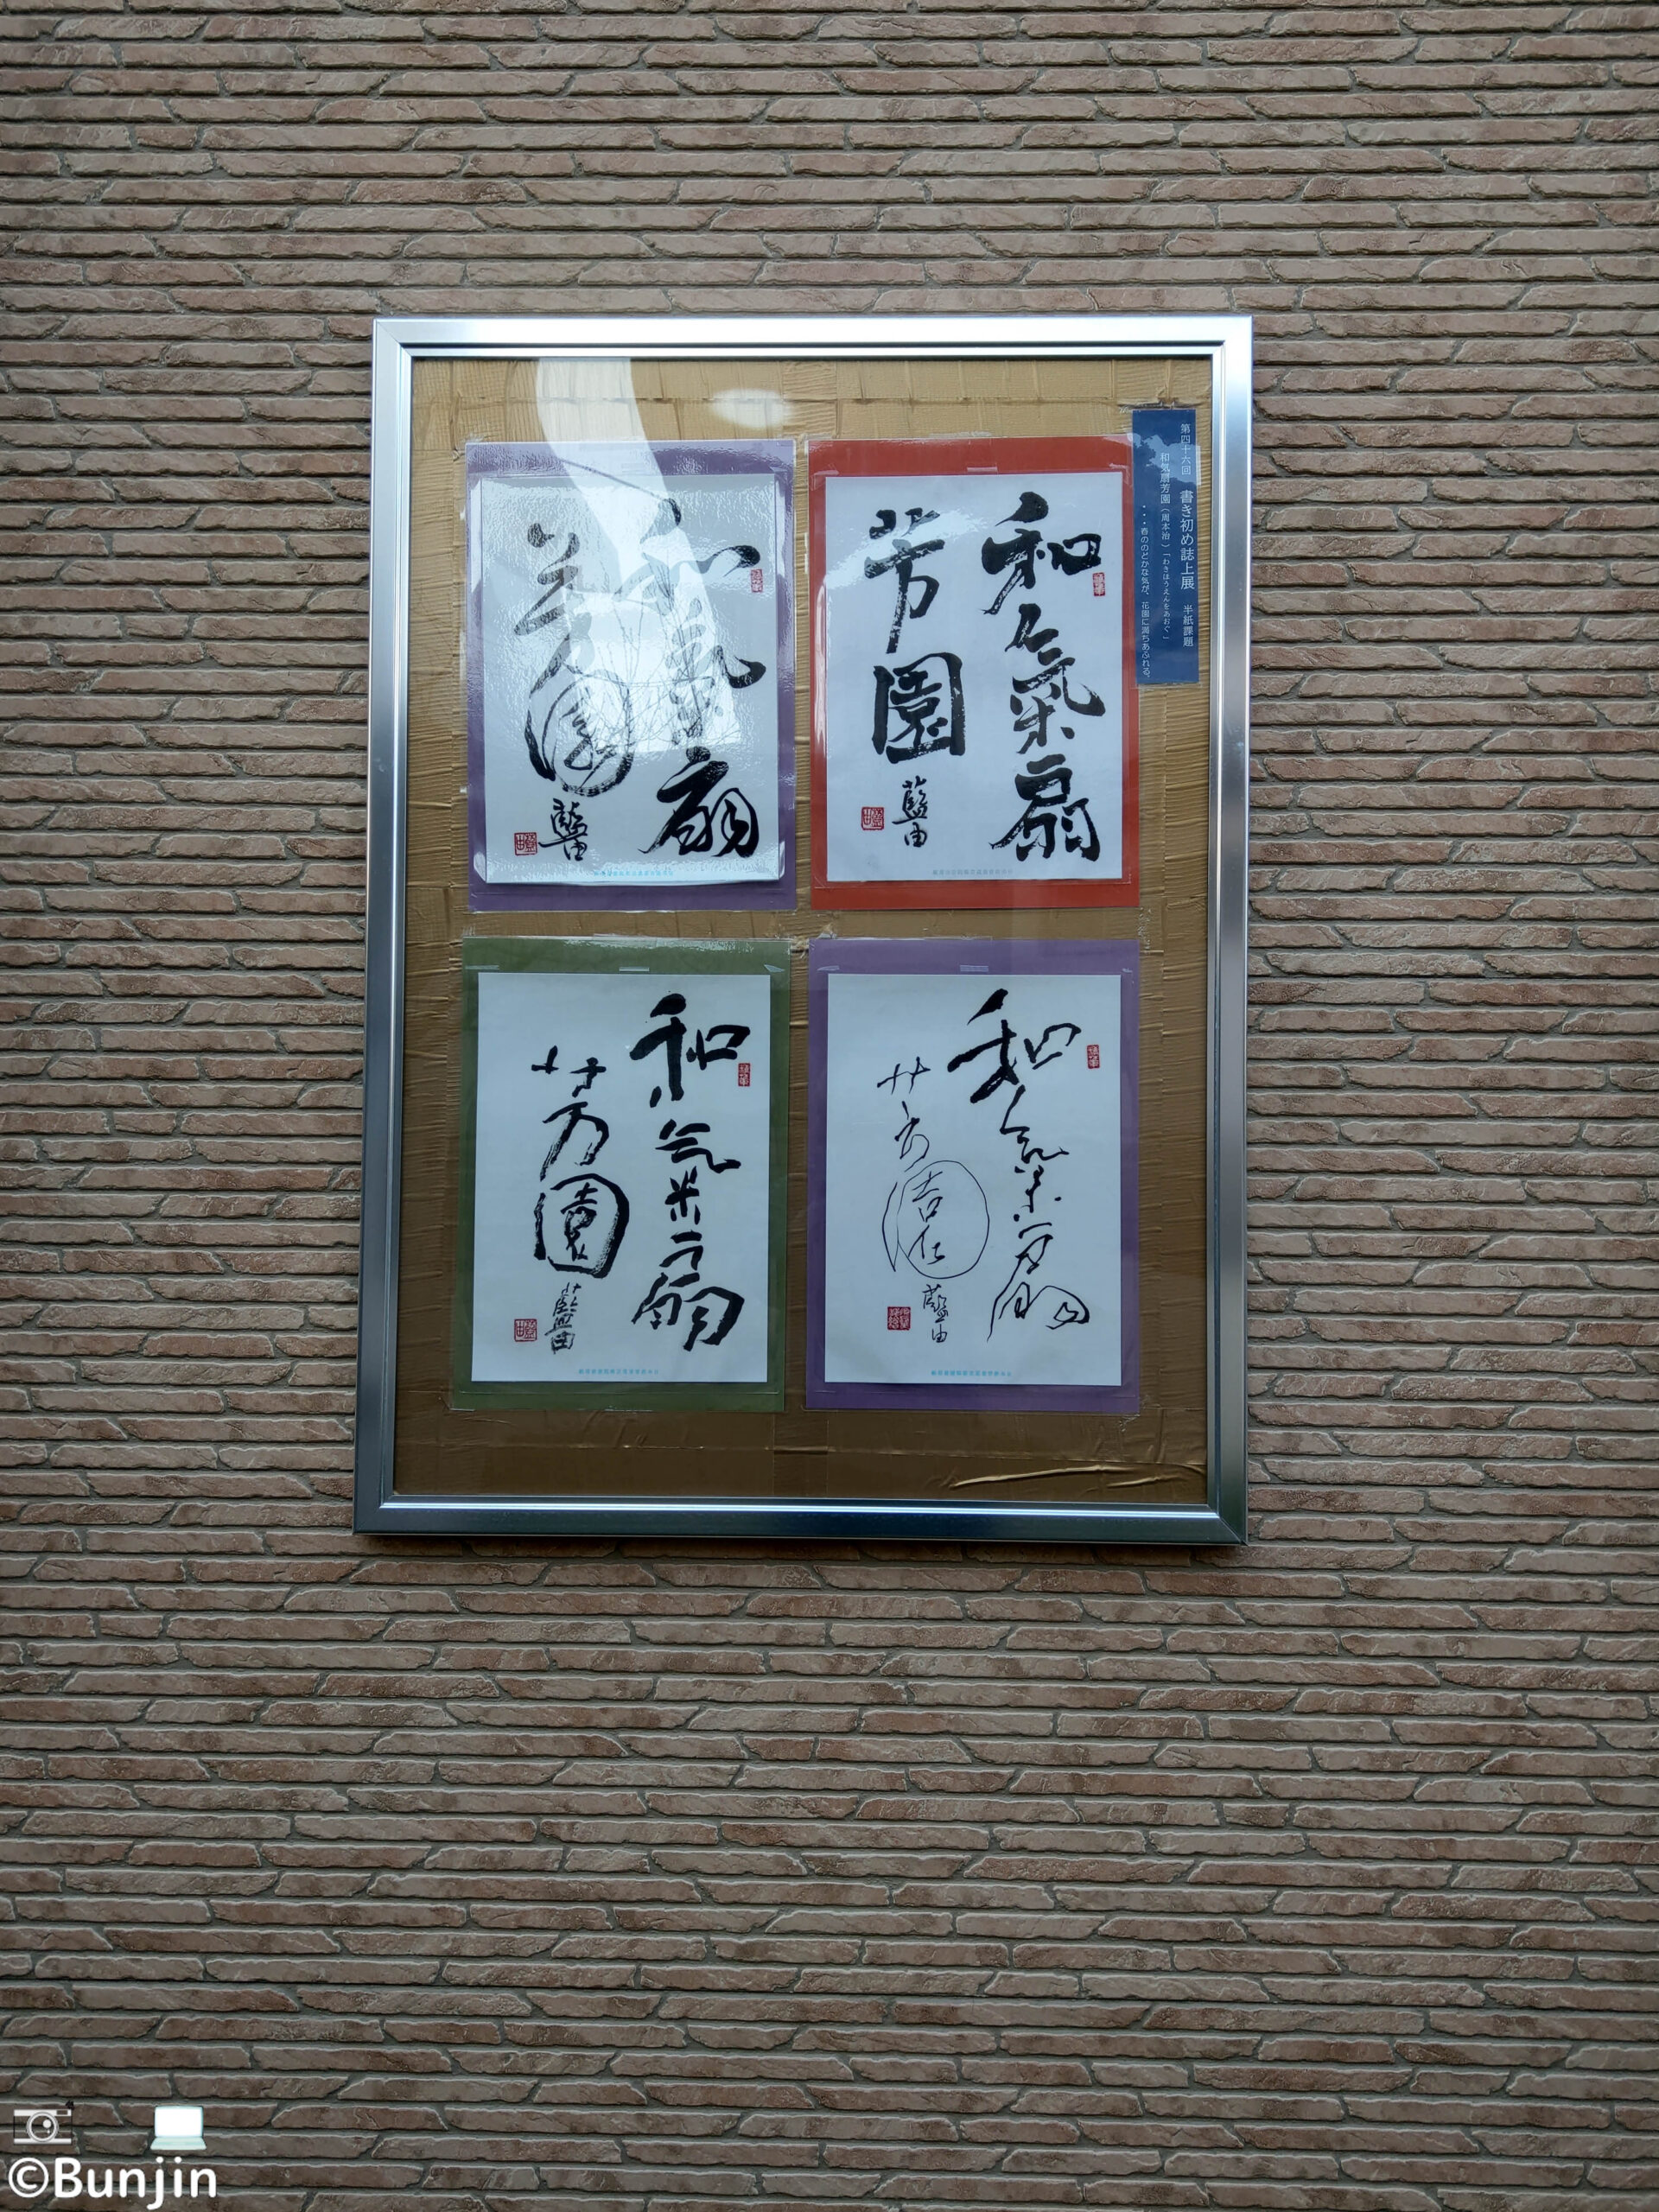 第四十六回 書き初め誌上展 半紙課題
和気扇芳園(周本治)「わきほうえんをあおぐ」
・・・春ののどかな気が、花園に満ちあふれる。
和氣扇
芳園
藍由
和氣扇
芳園
藍由
和氣扇
芳園
藍由
和氣扇
芳園
藍由
©Bunjin